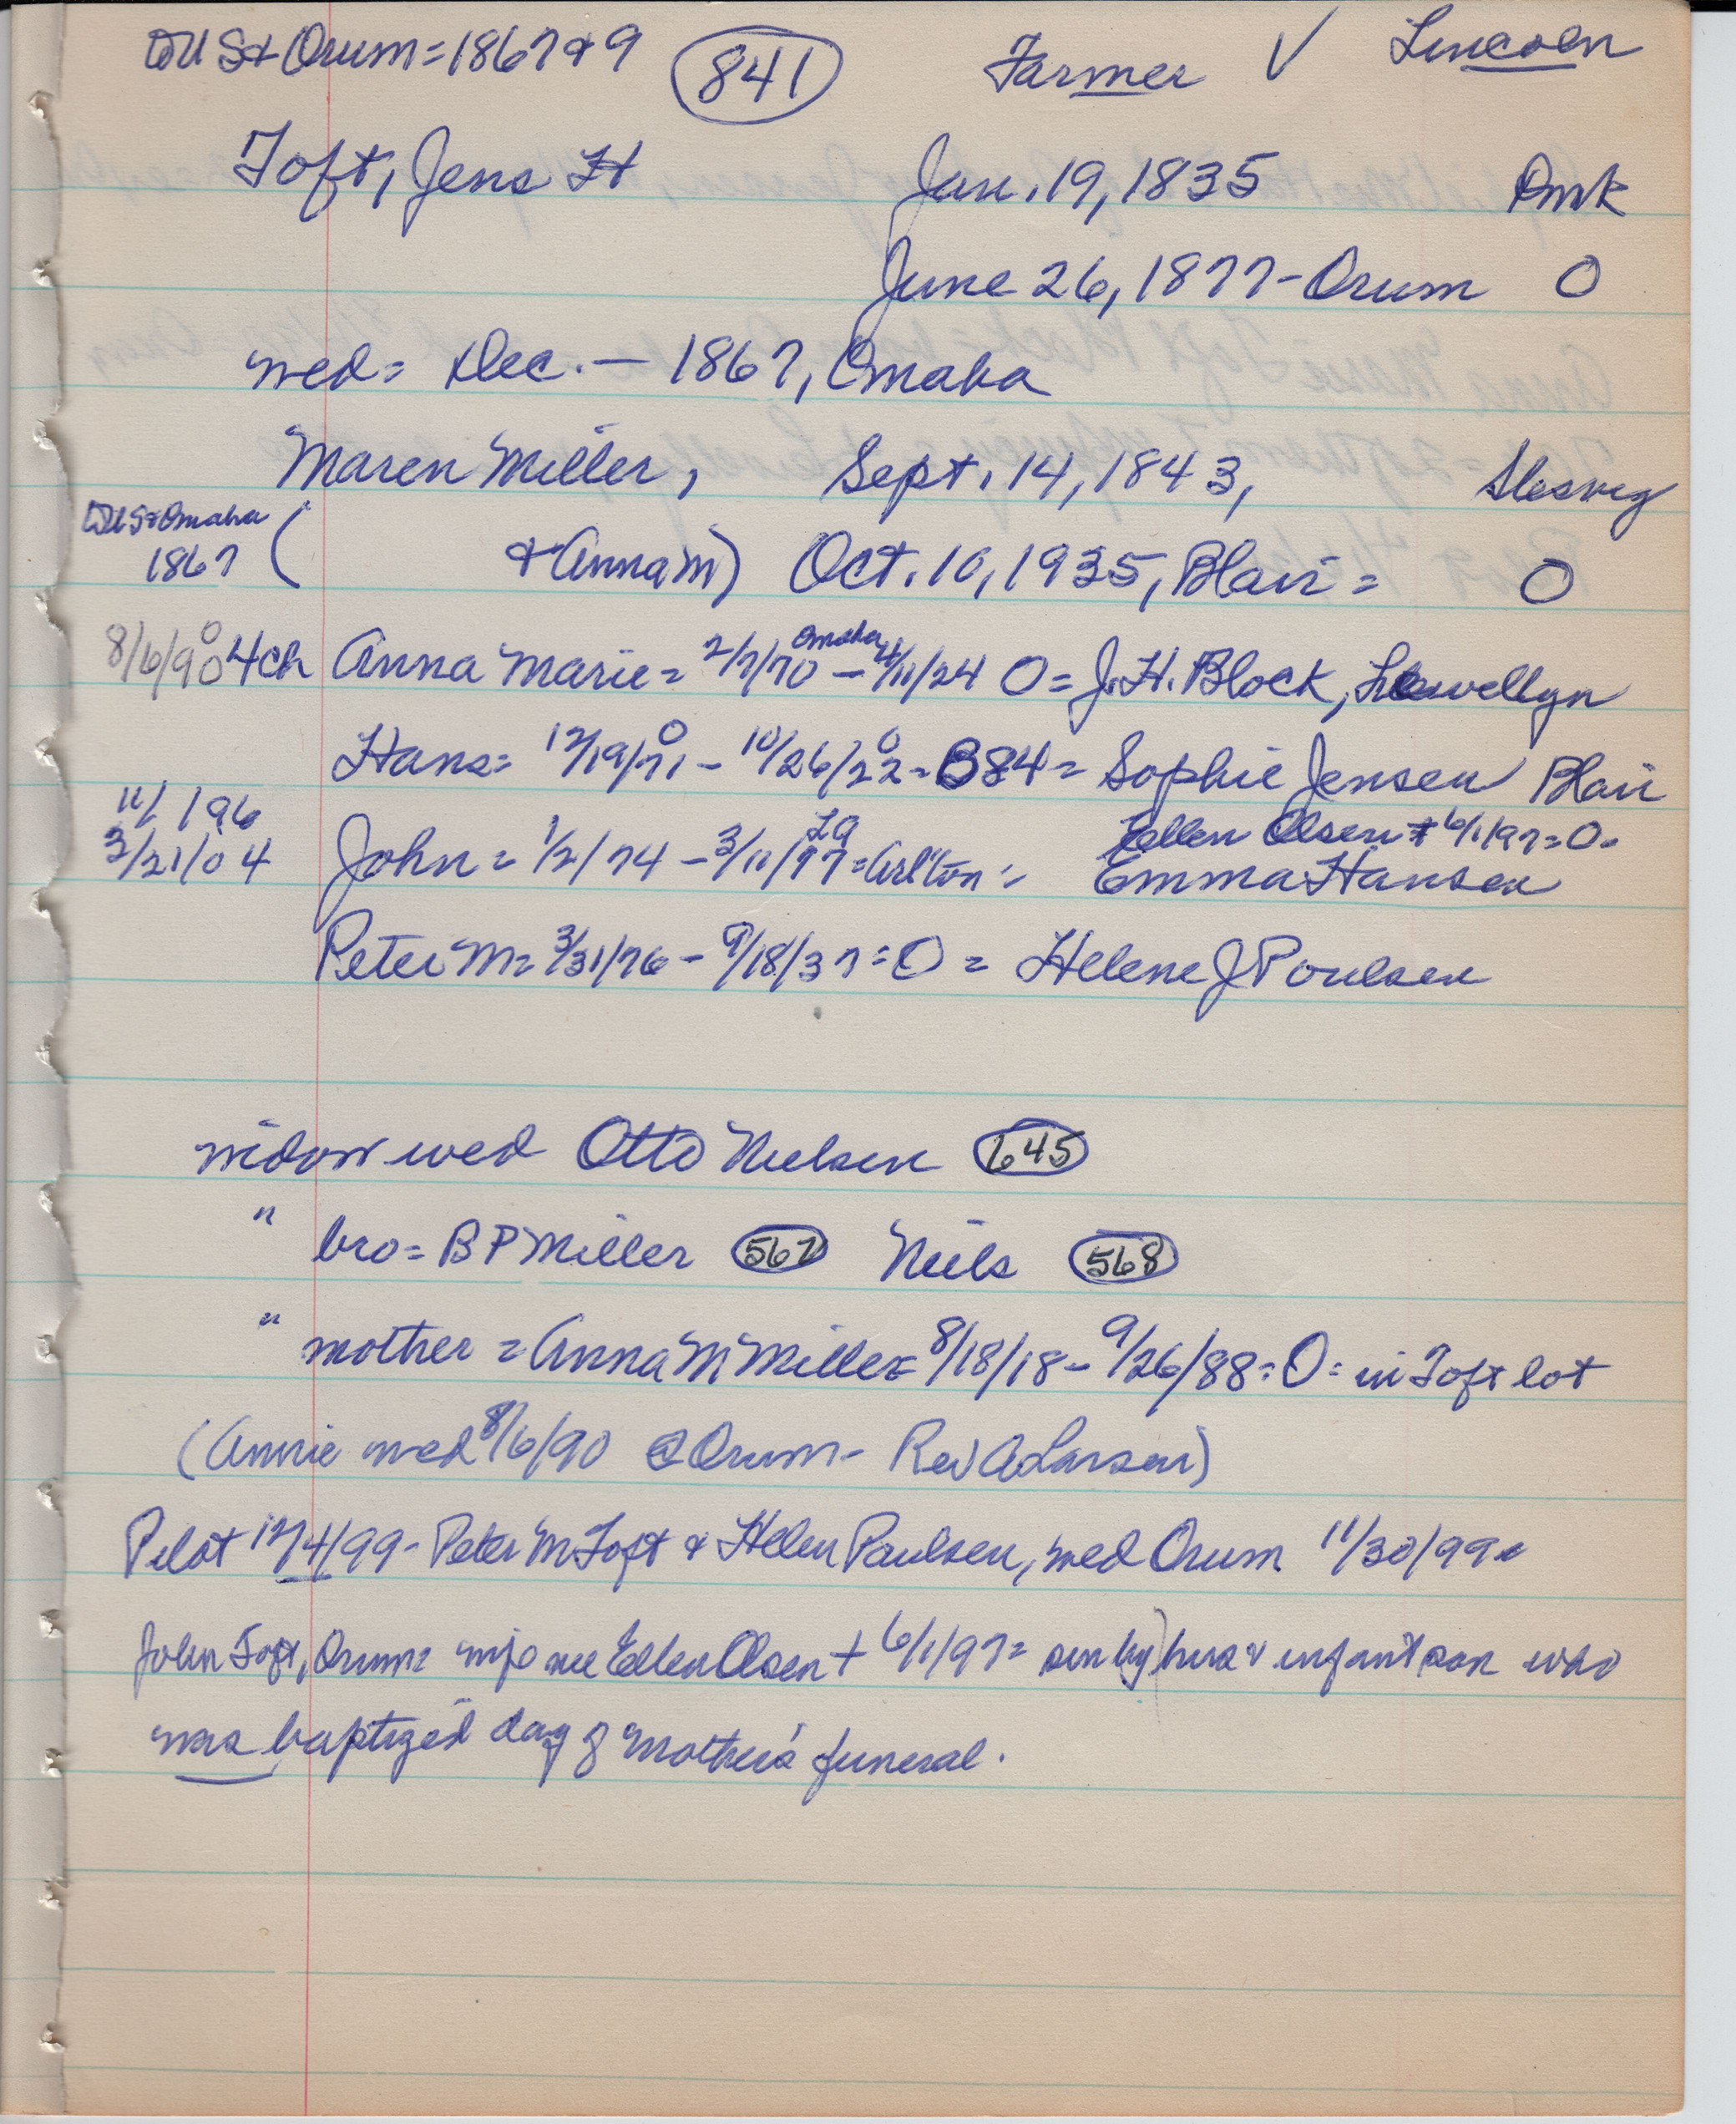 to US & Orum = 1867 & 9 841 Farmer ✓ Lincoln
Toft, Jens H Jan. 19, 1835 Dmk
June 26, 1877 - Orum O
wed = Dec. — 1867, Omaha
Maren Miller, Sept. 14, 1843, Slesvig
to US & Omaha
1867 ( & Anna M) Oct. 10, 1935, Blair = O
8/6/90 O 4ch Anna Marie = 2/7/70 Omaha - 4/11/24 O = J. H. Block, Lewellyn
Hans = 12/19/71 O - 10/26/22 O = B84 = Sophie Jensen Blair
11/ 196 Ellen Olsen + 6/1/97 = O.
3/21/04 John = 1/2/74 - 3/11/ = Arl'ton = Emma Hansen
Peter M = 3/31/76 - 9/18/37 = O = Helene J Poulsen
widow wed Otto Nielsen 645
" bro = B P Miller 567 Niels 568
" mother = Anna M Miller = 8/18/18 - 9/26/88 = O = in Toft lot
(Annie wed 8/6/90 @ Orum - Rev A Larsen)
Pilot 12/4/99 - Peter M Toft & Helen Paulsen, wed Orum 11/30/99.
John Toft, Orum = wife nee Ellen Olsen + 6/1/97 = sur by hus & infant son who
was baptized day of mother's funeral.